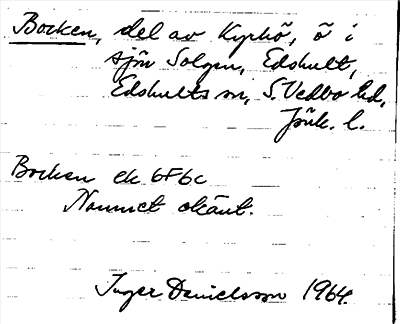 Bocken, del av Kyrkö, ö i
sjön Solgen, Edshult,
Edshults sn, S. Vedbo hd,
Jönk. l.
Bocken ek 6F6c
Namnet okänt.
Inger Danielsson 1964.